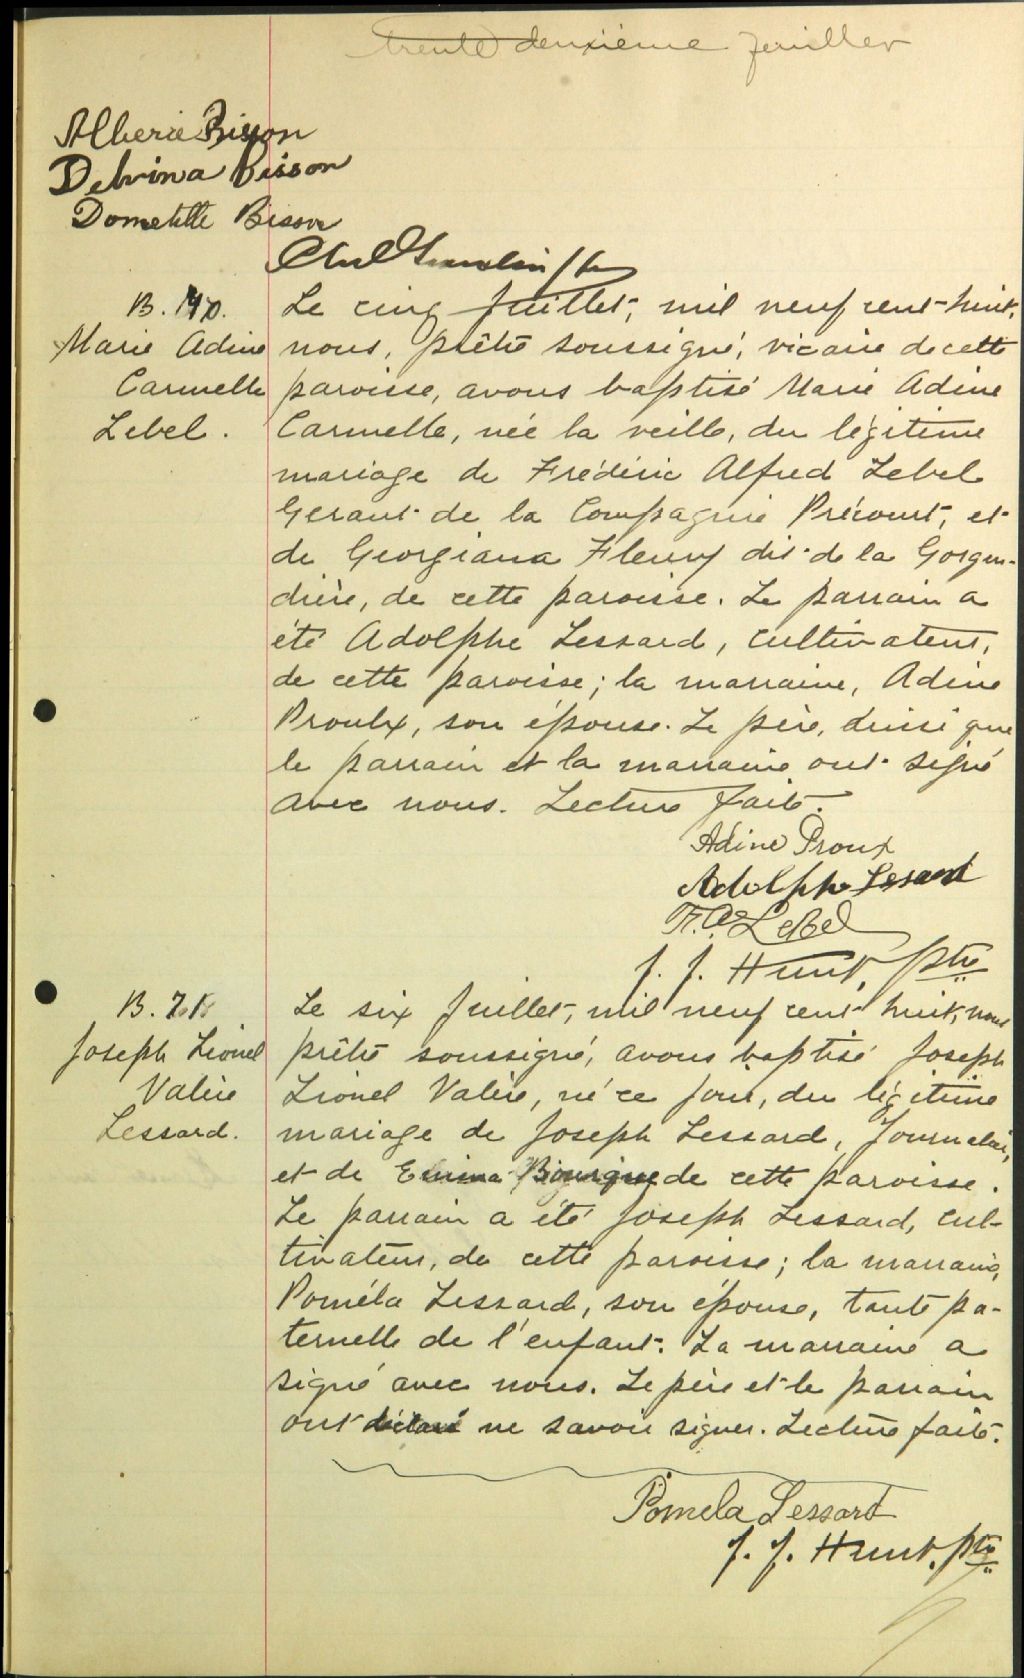 trente deuxième feuillet
Alberic Bisson
Delvina Bisson
Domethtte Bisson
B. 70.
Marie Adine
Carmelle
Lebel.
Le cinq Juillet, mil neuf cent huit,
nous, prêtre soussigné, vicaire de cette
paroisse, avons baptisé Marie Adine
Carmelle, née la veille, du légitime
mariage de Frédéric Alfred Lebel
Gérant de la Compagnie Précourt, et
de Georgiana Fleury dit de la Gorgen-
dière, de cette paroisse. Le parrain a
été Adolphe Lessard, cultivateur,
de cette paroisse; la marraine, Adine
Proulx, son épouse. Le père, ainsi que
le parrain et la marraine ont signé
avec nous. Lecture faite.
Adine Proux
Adolphe Lessard
F. A. LeBel
J. J. Hunt, ptre
B. 71
Joseph Lionel
Valère
Lessard.
Le six Juillet, mil neuf cent huit, nous
prêtre soussigné, avons baptisé Joseph
Lionel Valère, né ce jour, du légitime
mariage de Joseph Lessard, Journalier,
et de Emma Bourque de cette paroisse.
Le parrain a été Joseph Lessard, cul-
tivateur, de cette paroisse; la marraine,
Poméla Lessard, son épouse, tante pa-
ternelle de l'enfant. La marraine a
signé avec nous. Le père et le parrain
ont déclaré ne savoir signer. Lecture faite.
Pomela Lessard
J. J. Hunt, ptre